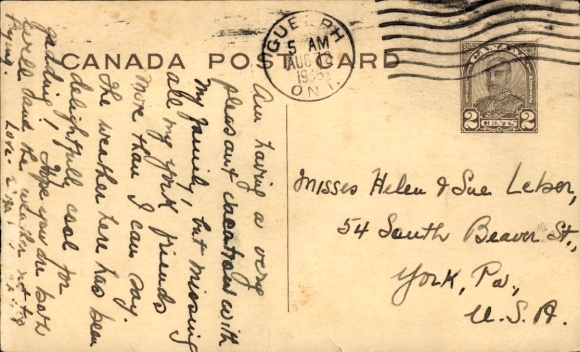 CANADA POST CARD
GUELPH
5 AM
AUG
ONT.
CANADA
2 CENTS 2
Am having a very
pleasant vacation with
my family, but missing
all my York friends
more than I can say.
The weather here has been
delightfully cool for
gadding. Hope you're both
well and the weather not too
trying.
Love
Misses Helen & Sue Lebor,
54 South Beaver St.,
York, Pa.,
U.S.A.